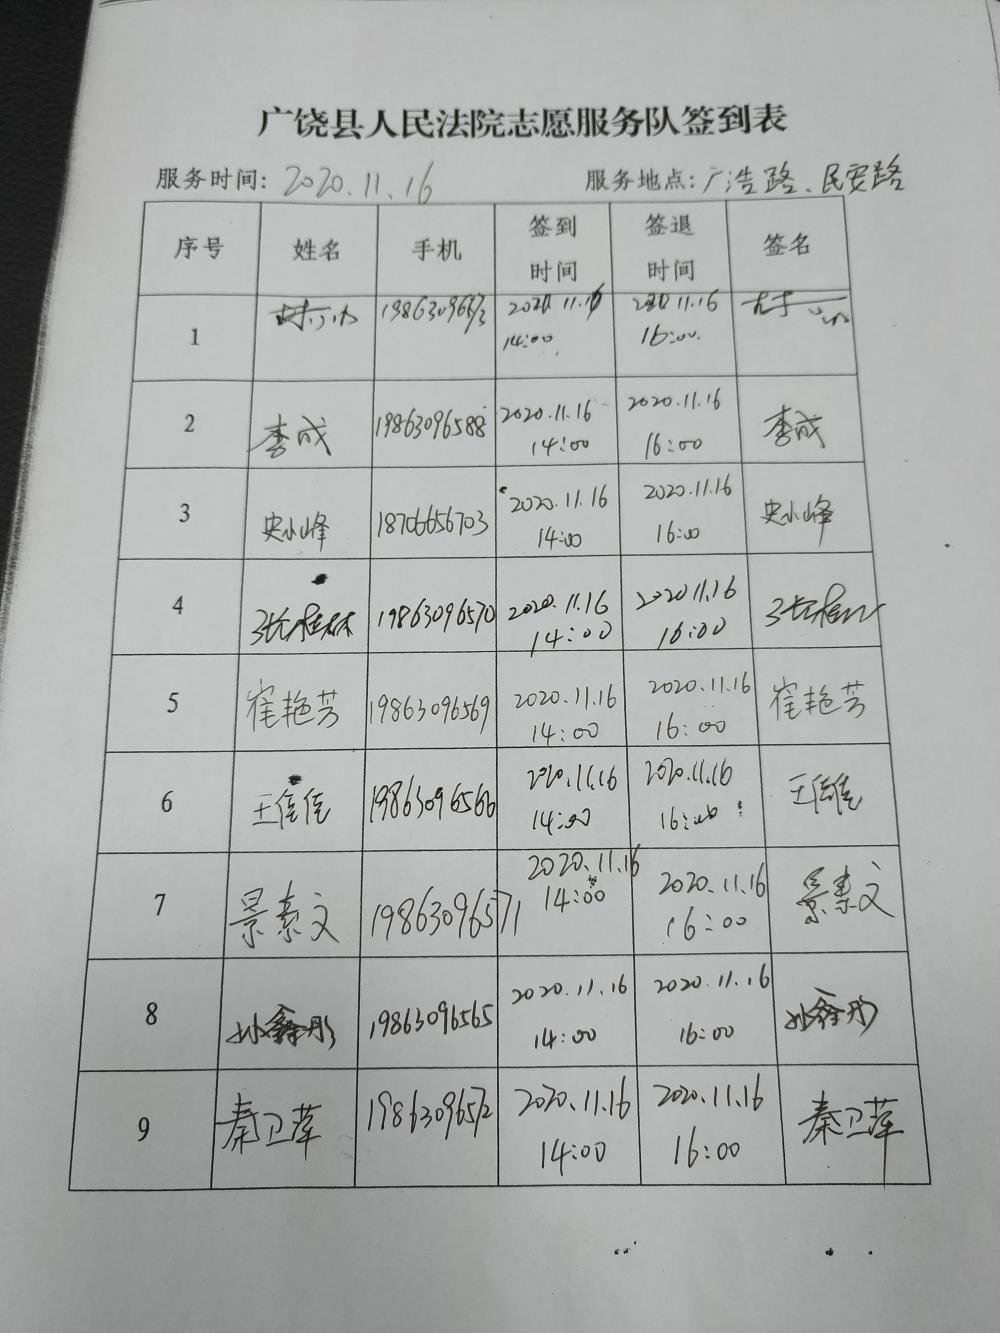 广饶县人民法院志愿服务队签到表
服务时间: 2020.11.16 服务地点: 广浩路、民安路
序号 姓名 手机 签到时间 签退时间 签名
1 19863096573 2020.11.16 14:00 2020.11.16 16:00.
2 李成 19863096588 2020.11.16 14:00 2020.11.16 16:00 李成
3 史小峰 18706656703 2020.11.16 14:00 2020.11.16 16:00 史小峰
4 张桂林 19863096570 2020.11.16 14:00 2020.11.16 16:00 张桂林
5 崔艳芳 19863096569 2020.11.16 14:00 2020.11.16 16:00 崔艳芳
6 王佳佳 19863096566 2020.11.16 14:00 2020.11.16 16:00 王佳佳
7 景素文 19863096571 2020.11.16 14:00 2020.11.16 16:00 景素文
8 孙鑫彤 19863096565 2020.11.16 14:00 2020.11.16 16:00 孙鑫彤
9 秦卫萍 19863096572 2020.11.16 14:00 2020.11.16 16:00 秦卫萍